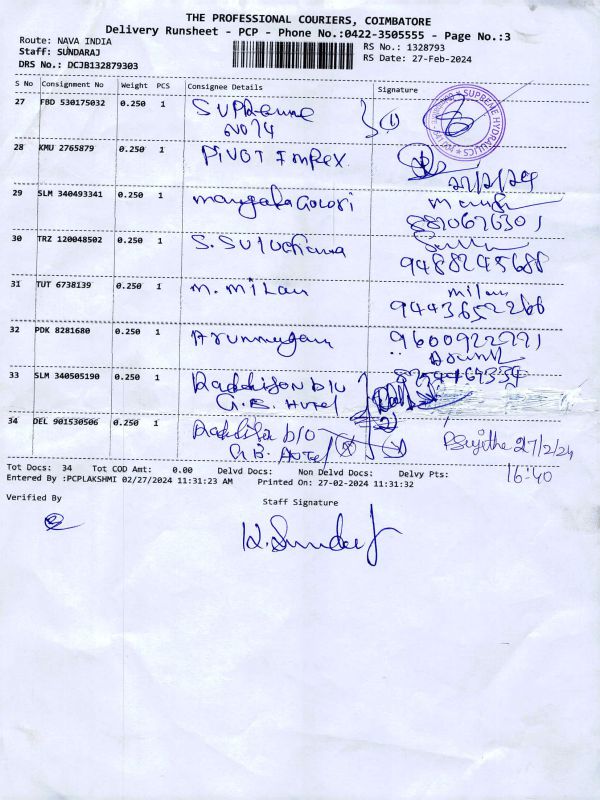 THE PROFESSIONAL COURIERS, COIMBATORE
Delivery Runsheet - PCP - Phone No.:0422-3505555 - Page No.:3
Route: NAVA INDIA RS No.: 1328793
Staff: SUNDARAJ RS Date: 27-Feb-2024
DRS No.: DCJB132879303
S No Consignment No Weight PCS Consignee Details Signature
27 FBD 530175032 0.250 1 Supreme 1
SUPREME HYDRAULICS
28 KMU 2765879 0.250 1 Pivot Impex
27/2/24
29 SLM 340493341 0.250 1
8820626301
30 TRZ 120048502 0.250 1 S. Sulochana
9488245688
31 TUT 6738139 0.250 1 M. Milan Milan
9443652266
32 PDK 8281680 0.250 1 Arunmugam 9600922221
33 SLM 340505190 0.250 1 Raddison blu
G.B. Hotel
2
34 DEL 901530506 0.250 1 Raddison blu P Sujitha 27/2/24
G.B. Hotel
16:40
Tot Docs: 34 Tot COD Amt: 0.00 Delvd Docs: Non Delvd Docs: Delvy Pts:
Entered By :PCPLAKSHMI 02/27/2024 11:31:23 AM Printed On: 27-02-2024 11:31:32
Verified By Staff Signature
K. Sundar